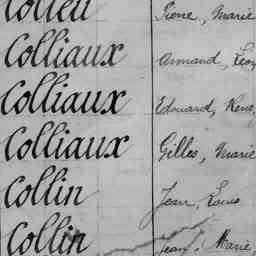 Marie
Colliaux Armand,
Colliaux Edouard,
Colliaux Gilles, Marie
Collin Jean, Louis
Collin Jean, Marie